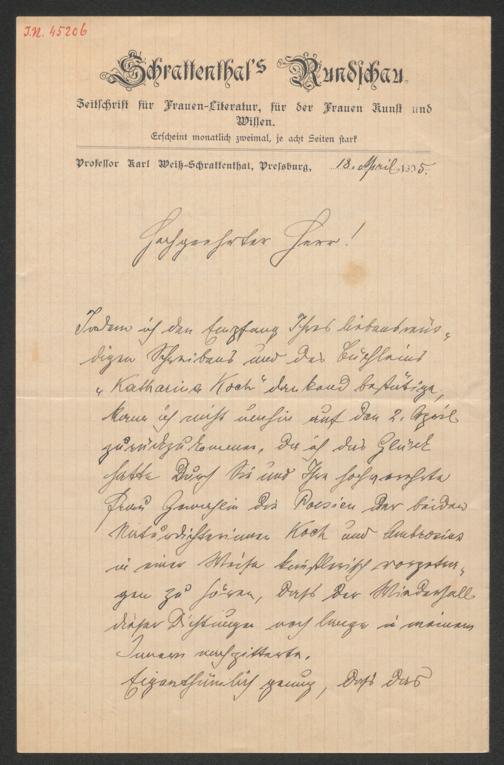 J.N. 45206
Schrattenthal's Rundschau
Zeitschrift für Frauen-Literatur, für der Frauen Kunst und
Wissen.
Erscheint monatlich zweimal, je acht Seiten stark
Professor Karl Weiß-Schrattenthal, Pressburg, 18. April 1895.
Hochgeehrter Herr!
Indem ich den Empfang Ihres liebenswür-
digen Schreibens und des Büchleins
„Katharina Koch" dankend bestätige,
kann ich nicht umhin auf den 2. April
zurückzukommen, da ich das Glück
hatte durch Sie und Ihre hochverehrte
Frau Gemahlin die Poesien der beiden
Naturdichterinnen Koch und Ambrosius
in einer Weise künstlerisch vorgetra-
gen zu hören, daß der Wiederhall
dieser Dichtungen noch lange in meinem
Innern nachzitterte.
Eigenthümlich genug, daß das